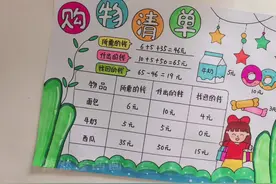 购物清单
所需的钱 6+5+35=46元
付出的钱 10+5+50=65元
找回的钱 65-46=19元
牛奶 5元
10元
物品 所需的钱 付出的钱 找回的钱
面包 6元 10元 4元
牛奶 5元 5元 0元
西瓜 35元 50元 15元